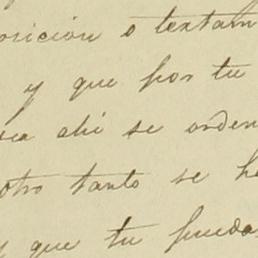 osición o textam
y que por tu
ea ahi se orden
otro tanto se h
y que tu pueda